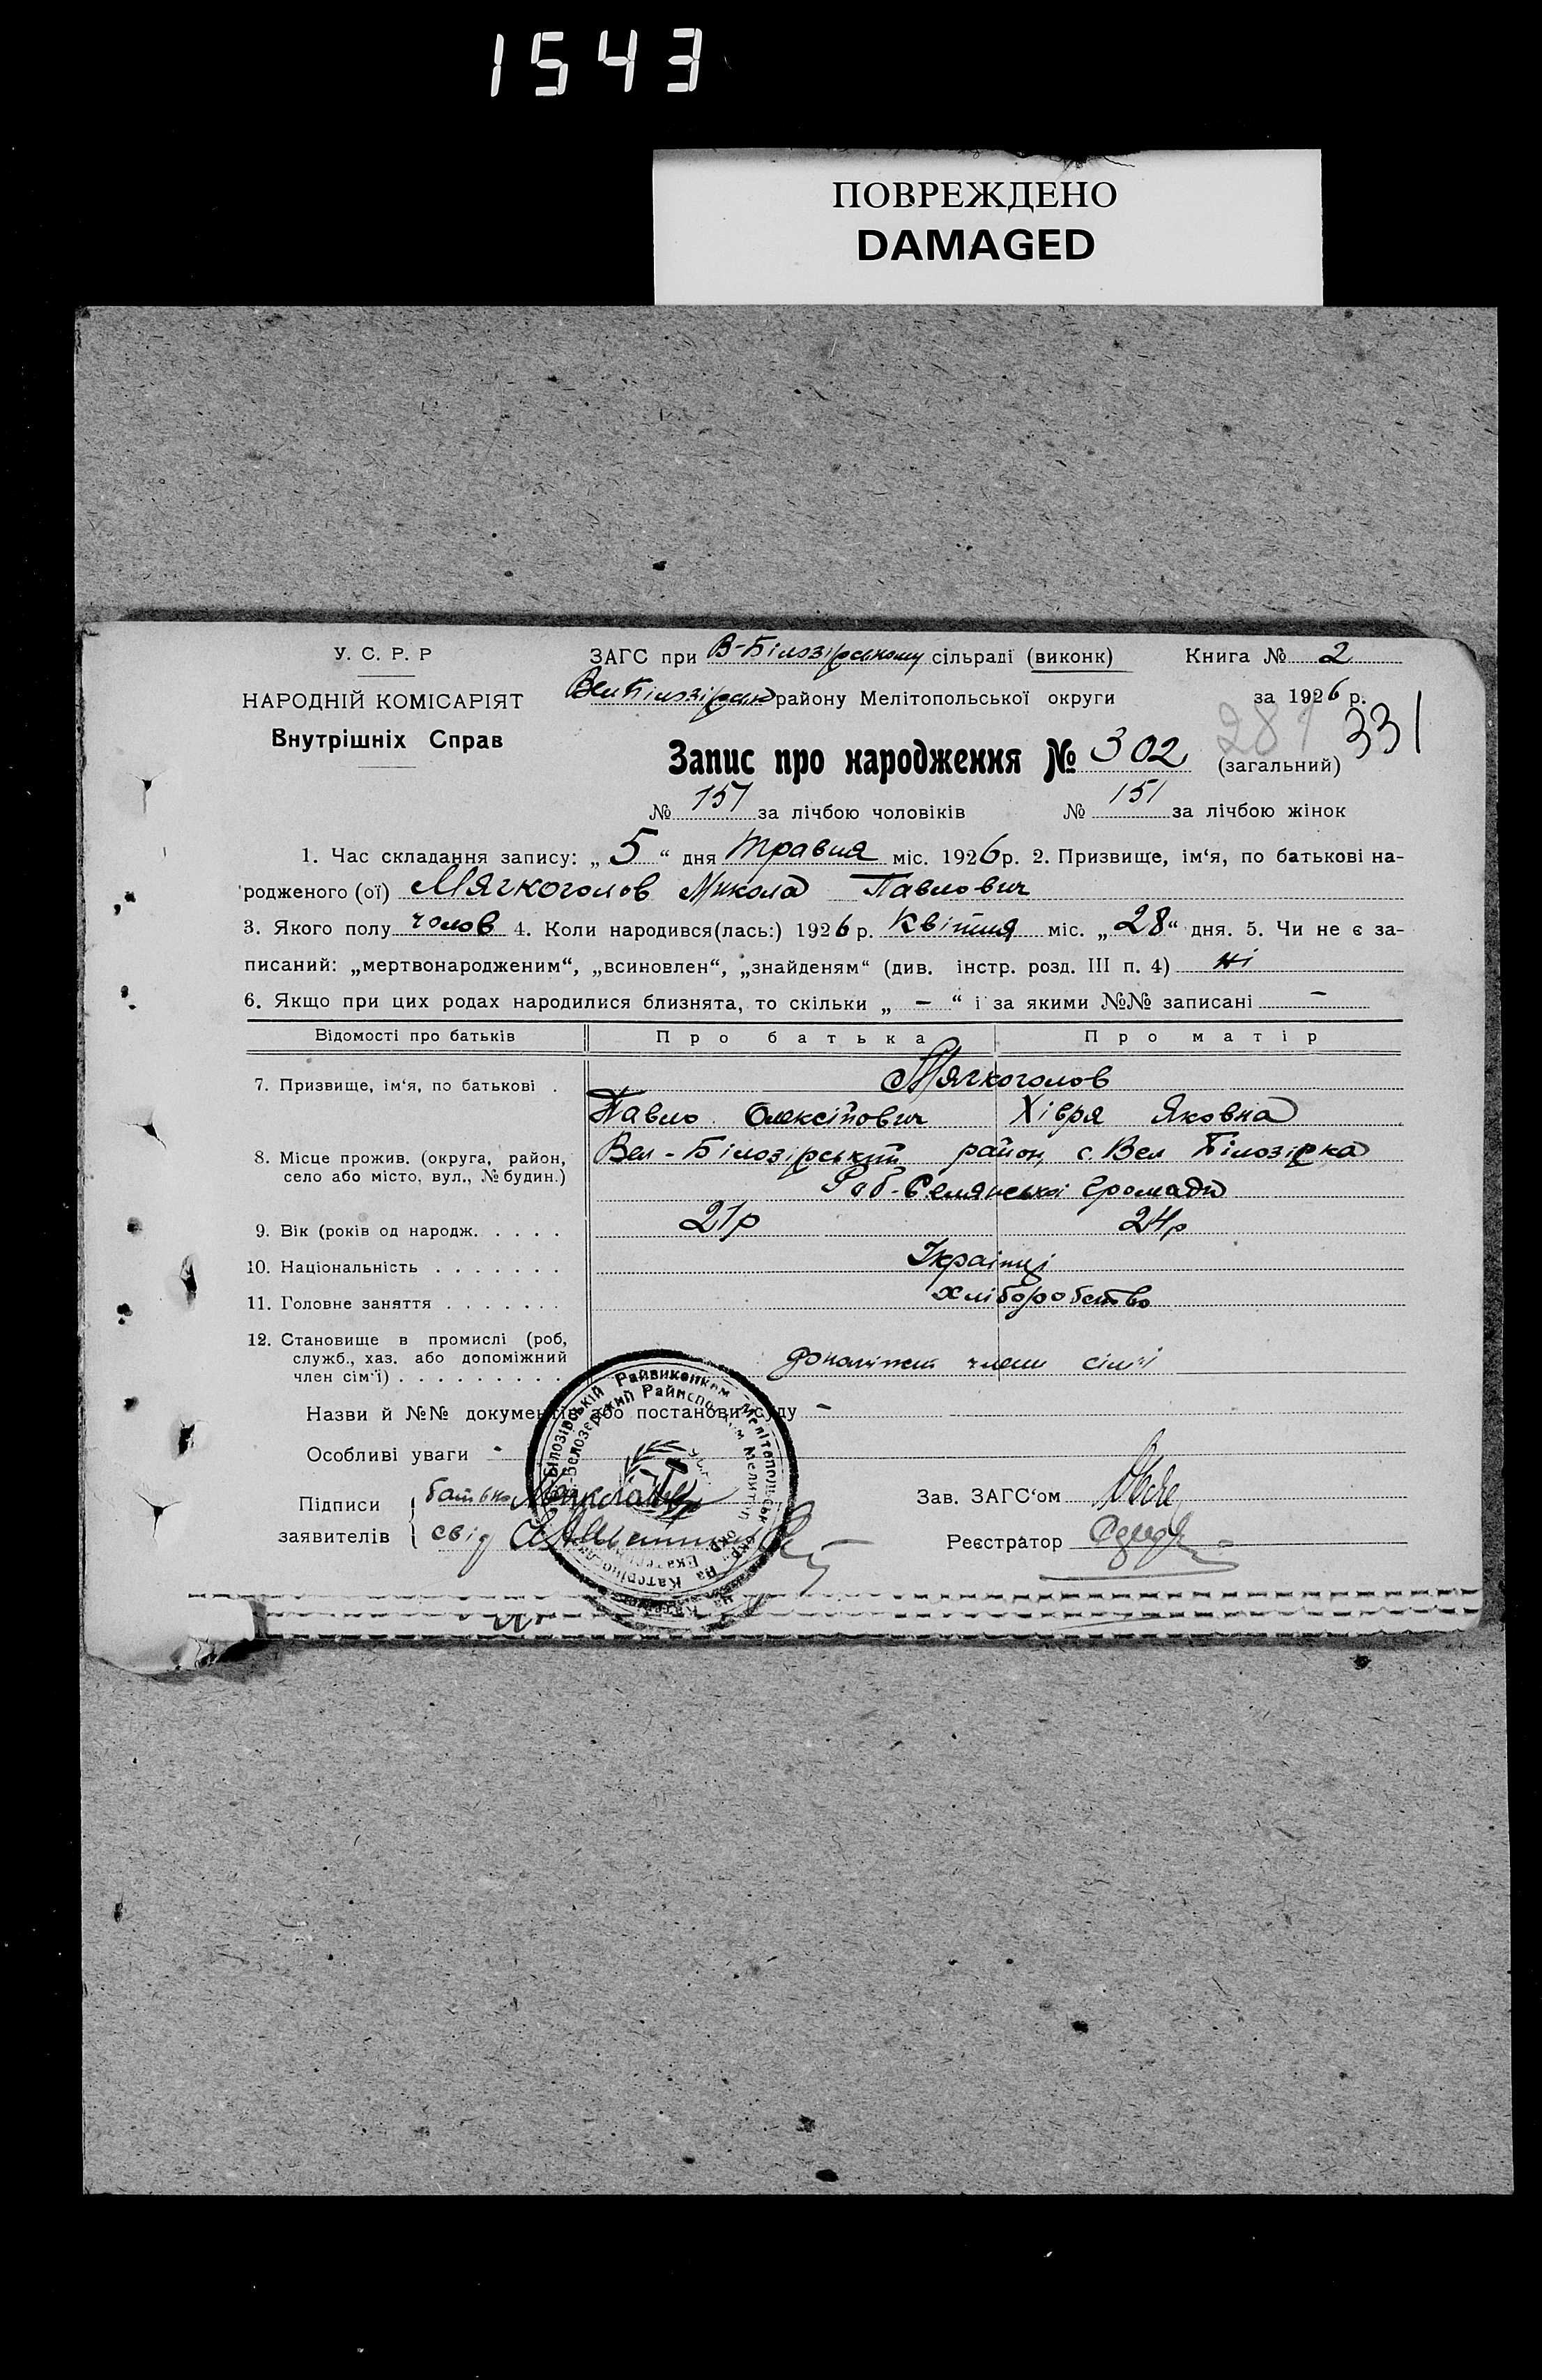 1543
ПОВРЕЖДЕНО
DAMAGED
У. С. Р. Р
НАРОДНІЙ КОМІСАРІЯТ
Внутрішніх Справ
ЗАГС при В-Білозірському сільраді (виконк) Книга № 2
Вел Білозірськ району Мелітопольської округи за 1926 р.
281 331
Запис про народження № 302 (загальний)
№ 151 за лічбою чоловіків № 151 за лічбою жінок
1. Час складання запису: „5“ дня Травня міс. 1926 р. 2. Призвище, ім‘я, по батькові на-
родженого (ої) Мягкоголов Микола Павлович
3. Якого полу чолов 4. Коли народився(лась:) 1926 р. Квітня міс. „28“ дня. 5. Чи не є за-
писаний: „мертвонародженим“, „всиновлен“, „знайденям“ (див. інстр. розд. III п. 4) ні
6. Якщо при цих родах народилися близнята, то скільки „ – “ і за якими №№ записані –
Відомості про батьків Про батька Про матір
7. Призвище, ім‘я, по батькові . Мягкоголов
Павло Олексійович Хівря Яковна
8. Місце прожив. (округа, район, село або місто, вул., № будин.) Вел-Білозірський район, с. Вел Білозірка
Селянської громади
9. Вік (років од народж. . . . . 21р 24р
10. Національність . . . . . . . Українці
11. Головне заняття . . . . . . . хліборобство
12. Становище в промислі (роб, служб., хаз. або допоміжний член сім‘ї) . . . . . . . . . члени сім'ї
Назви й №№ документів або постанови суду –
Особливі уваги -
Підписи заявителів { батько
свід
Зав. ЗАГС‘ом
Реєстратор
Білозірській Райвиконком Мелітопольськ окр. на Катериносл
Белозерский Райисполком Мелитоп окр. на Екатер